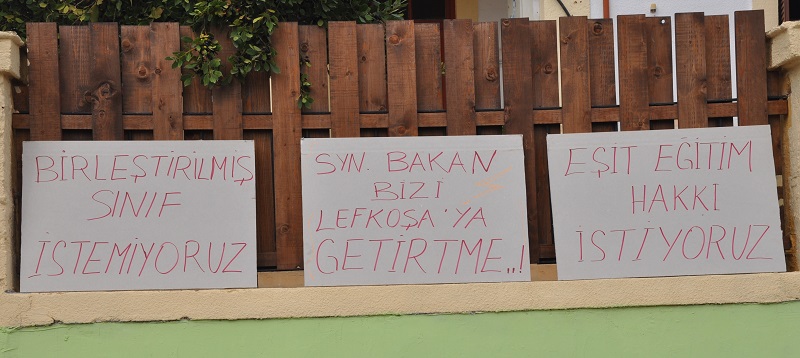 BİRLEŞTİRİLMİŞ
SINIF
İSTEMİYORUZ
SYN. BAKAN
BİZİ
LEFKOŞA'YA
GETİRTME..!
EŞİT EĞİTİM
HAKKI
İSTİYORUZ